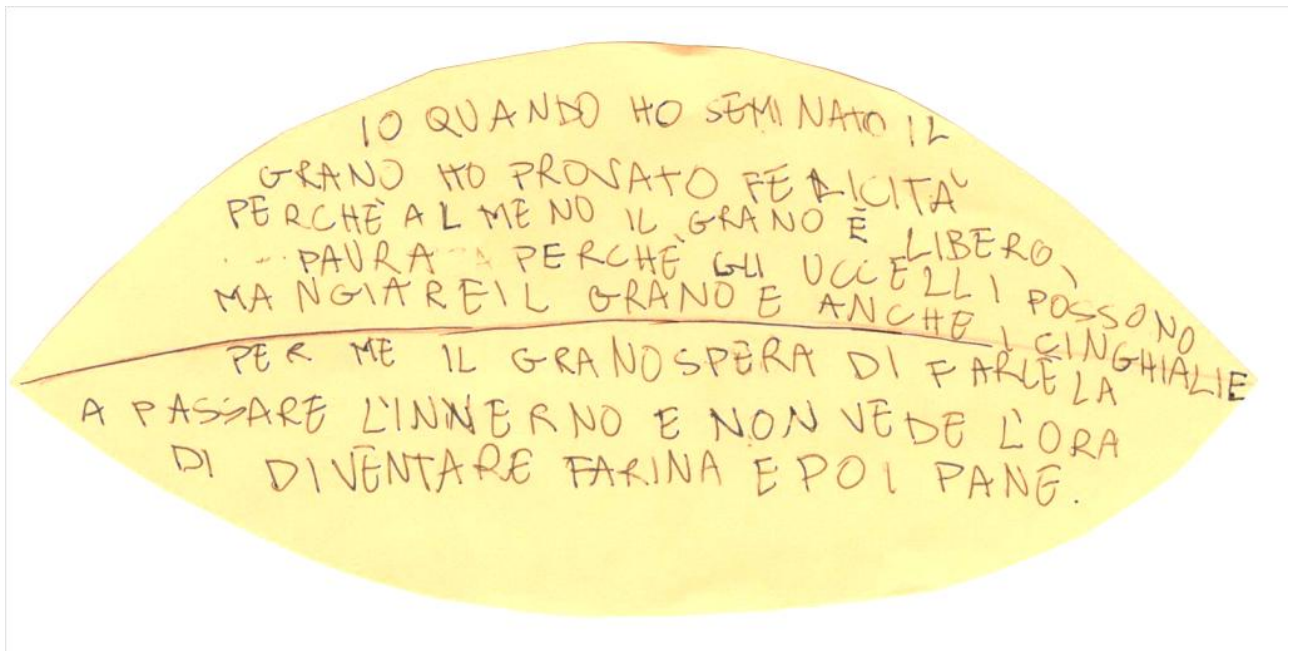 IO QUANDO HO SEMINATO IL
GRANO HO PROVATO FELICITÀ
PERCHÈ ALMENO IL GRANO È LIBERO,
PAURA PERCHÈ GLI UCCELLI POSSONO
MANGIARE IL GRANO E ANCHE I CINGHIALI E
PER ME IL GRANO SPERA DI FARCELA
A PASSARE L'INVERNO E NON VEDE L'ORA
DI DIVENTARE FARINA E POI PANE.